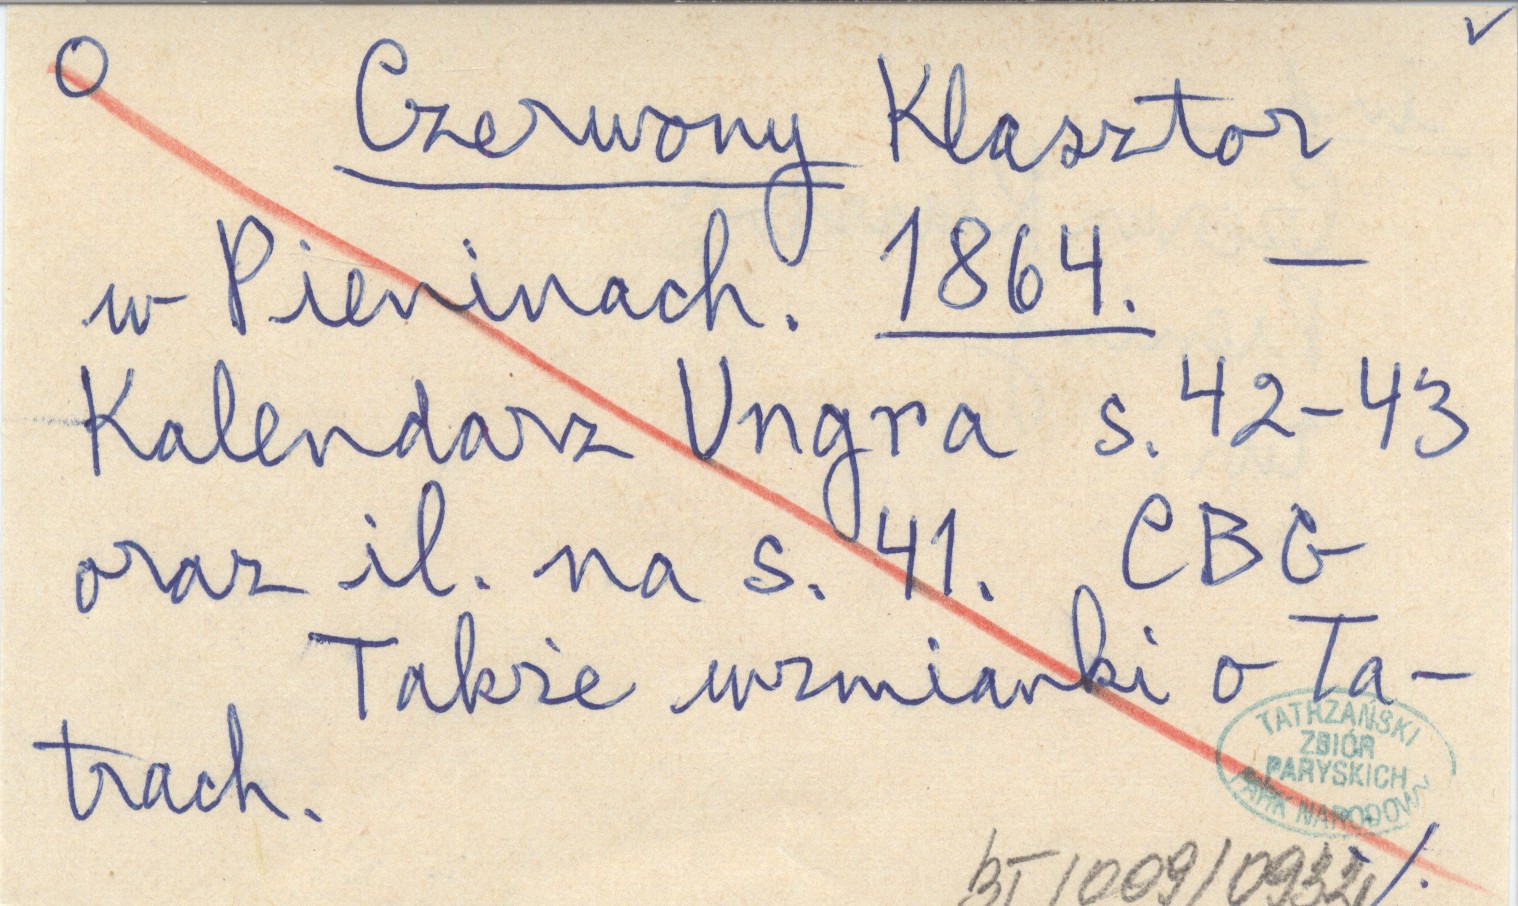 O Czerwony Klasztor
w Pieninach. 1864. —
Kalendarz Ungra s. 42-43
oraz il. na s. 41. CBG
Także wzmianki o Ta-
trach.
TATRZAŃSKI
ZBIÓR
PARYSKICH
PARK NARODOWY
BT/009/0932/